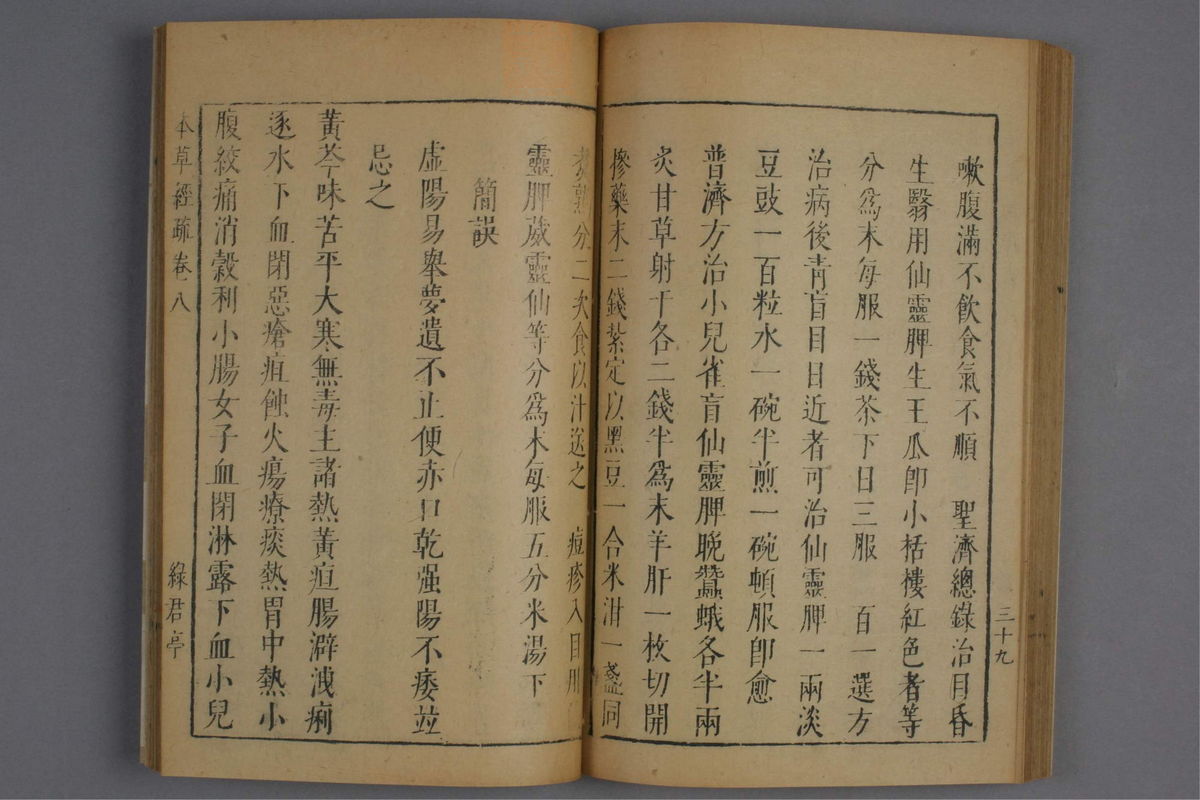 嗽腹滿不飲食氣不順　聖濟總錄治目昏
生翳用仙靈脾生王瓜卽小栝樓紅色者等
分爲末每服一錢茶下日三服　百一選方
治病後靑盲目日近者可治仙靈脾一兩淡
豆豉一百粒水一碗半煎一碗頓服卽愈
普濟方治小兒雀盲仙靈脾晚蠶蛾各半兩
炙甘草射干各二錢半爲末羊肝一枚切開
摻藥末二錢紮定以黑豆一合米泔一盞同
三十九
煑熟分二次食以汁送之　痘疹入目用
靈脾葳靈仙等分爲末每服五分米湯下
簡誤
虛陽易舉夢遺不止便赤口乾强陽不痿並
忌之
黃芩味苦平大寒無毒主諸熱黃疸腸澼洩痢
逐水下血閉惡瘡疽蝕火瘍療痰熱胃中熱小
腹絞痛消穀利小腸女子血閉淋露下血小兒
本草經疏卷八　綠君亭